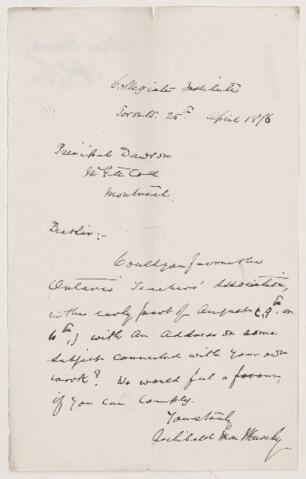 Collegiate Institute
Toronto. 25th April 1876
Principal Dawson
McGill Coll
Montreal.
Dear Sir:-
Could you favour the
Ontario Teachers' Association,
in the early part of August
with an Address on some
subject connected with your own
work? We would feel a favour,
if you can comply.
Yours truly
Archibald MacMurchy